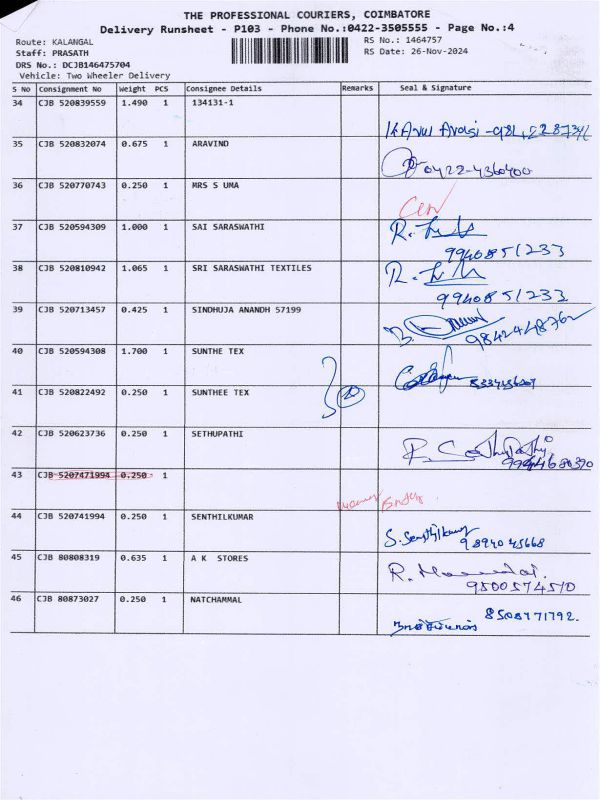 THE PROFESSIONAL COURIERS, COIMBATORE
Delivery Runsheet - P103 - Phone No.:0422-3505555 - Page No.:4
Route: KALANGAL
Staff: PRASATH
DRS No.: DCJB146475704
Vehicle: Two Wheeler Delivery
RS No.: 1464757
RS Date: 26-Nov-2024
S No Consignment No Weight PCS Consignee Details Remarks Seal & Signature
34 CJB 520839559 1.490 1 134131-1
35 CJB 520832074 0.675 1 ARAVIND
0422-4360400
36 CJB 520770743 0.250 1 MRS S UMA
37 CJB 520594309 1.000 1 SAI SARASWATHI
9940851233
38 CJB 520810942 1.065 1 SRI SARASWATHI TEXTILES
9940851233
39 CJB 520713457 0.425 1 SINDHUJA ANANDH 57199
9842448762
40 CJB 520594308 1.700 1 SUNTHE TEX
41 CJB 520822492 0.250 1 SUNTHEE TEX
42 CJB 520623736 0.250 1 SETHUPATHI
43 CJB 5207471994 0.250 1
44 CJB 520741994 0.250 1 SENTHILKUMAR
S. Senthilkumar
9894045668
45 CJB 80808319 0.635 1 A K STORES
9500574510
46 CJB 80873027 0.250 1 NATCHAMMAL
8508771792.